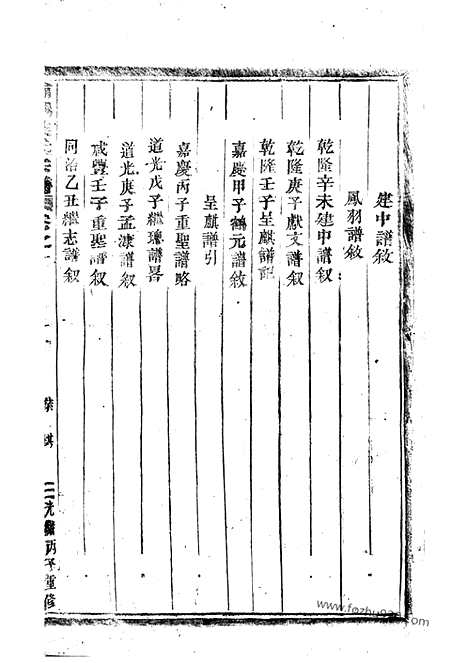 建中譜敘
鳳羽譜敘
乾隆辛未建中譜叙
乾隆庚子獻文譜叙
乾隆壬子呈麒譜記
嘉慶甲子鶴元譜敘
呈麒譜引
嘉慶丙子重聖譜略
道光戊子繼璁譜畧
道光庚子孟溁譜叙
咸豐壬子重聖譜叙
同治乙丑繼志譜叙
光緒丙子重修
www.fozhu920.com